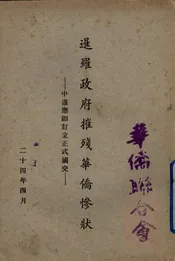 暹羅政府摧殘華僑慘狀
——中暹應卽訂立正式國交——
二十四年四月
華僑聯合會